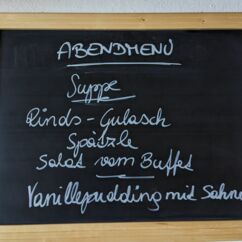 ABENDMENÜ
Suppe
Rinds-Gulasch
Spätzle
Salat vom Buffet
Vanillepudding mit Sahne